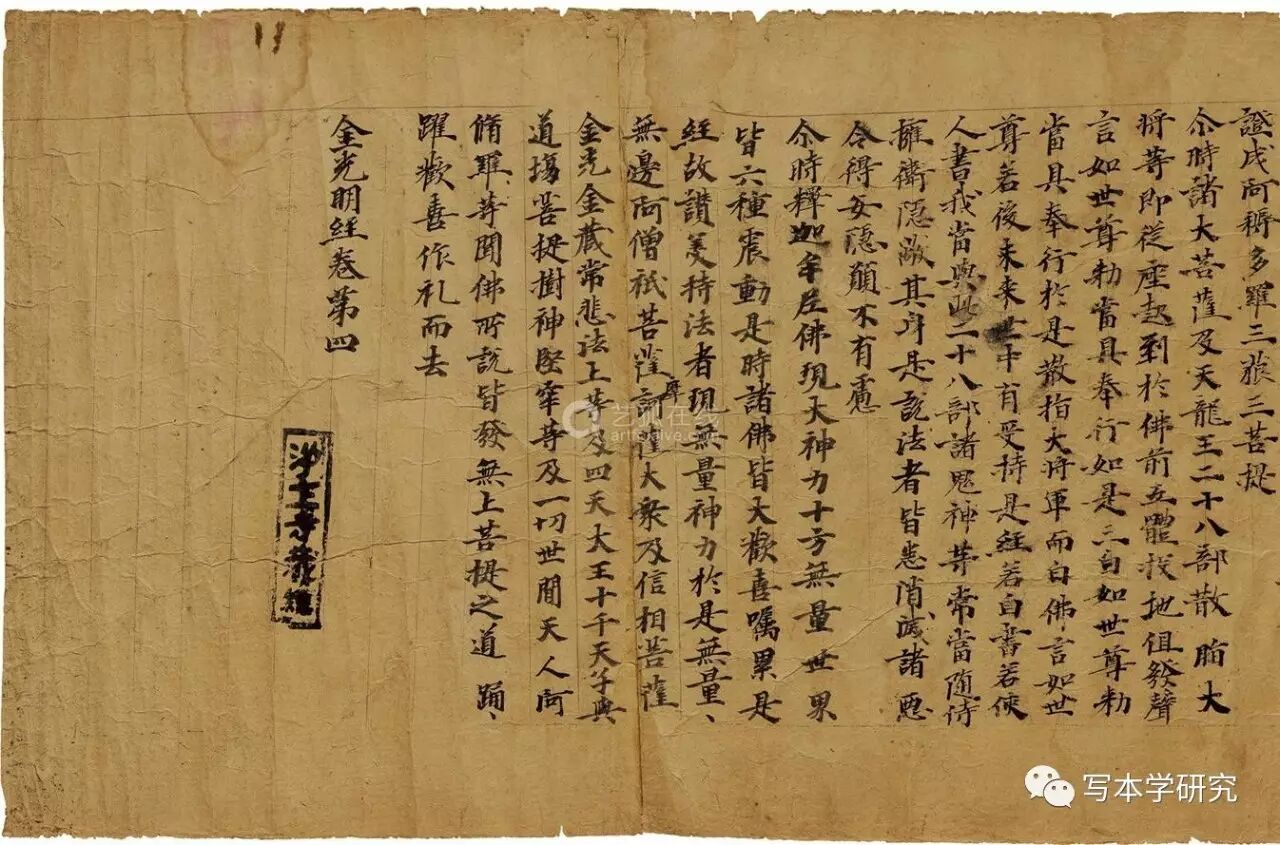 證成阿耨多羅三藐三菩提
尒時諸大菩薩及天龍王二十八部散脂大
將等即從座起到於佛前五體投地俱發聲
言如世尊勑當具奉行如是三白如世尊勑
當具奉行於是散指大將軍而白佛言如世
尊若後未來世中有受持是經若自書若使
人書我當與此二十八部諸鬼神等常當隨侍
擁衞隱蔽其身是說法者皆悉消滅諸惡
令得安隱願不有慮
尒時釋迦牟尼佛現大神力十方無量世界
皆六種震動是時諸佛皆大歡喜囑累是
經故讚美持法者現無量神力於是無量、
無邊阿僧祇菩薩訶薩大衆及信相菩薩
摩
金光金藏常悲法上等及四天大王十千天子與
道場菩提樹神堅牢等及一切世間天人阿
脩羅等聞佛所說皆發無上菩提之道踊、
躍歡喜作礼而去
金光明經卷第四
艺狐在线
写本学研究